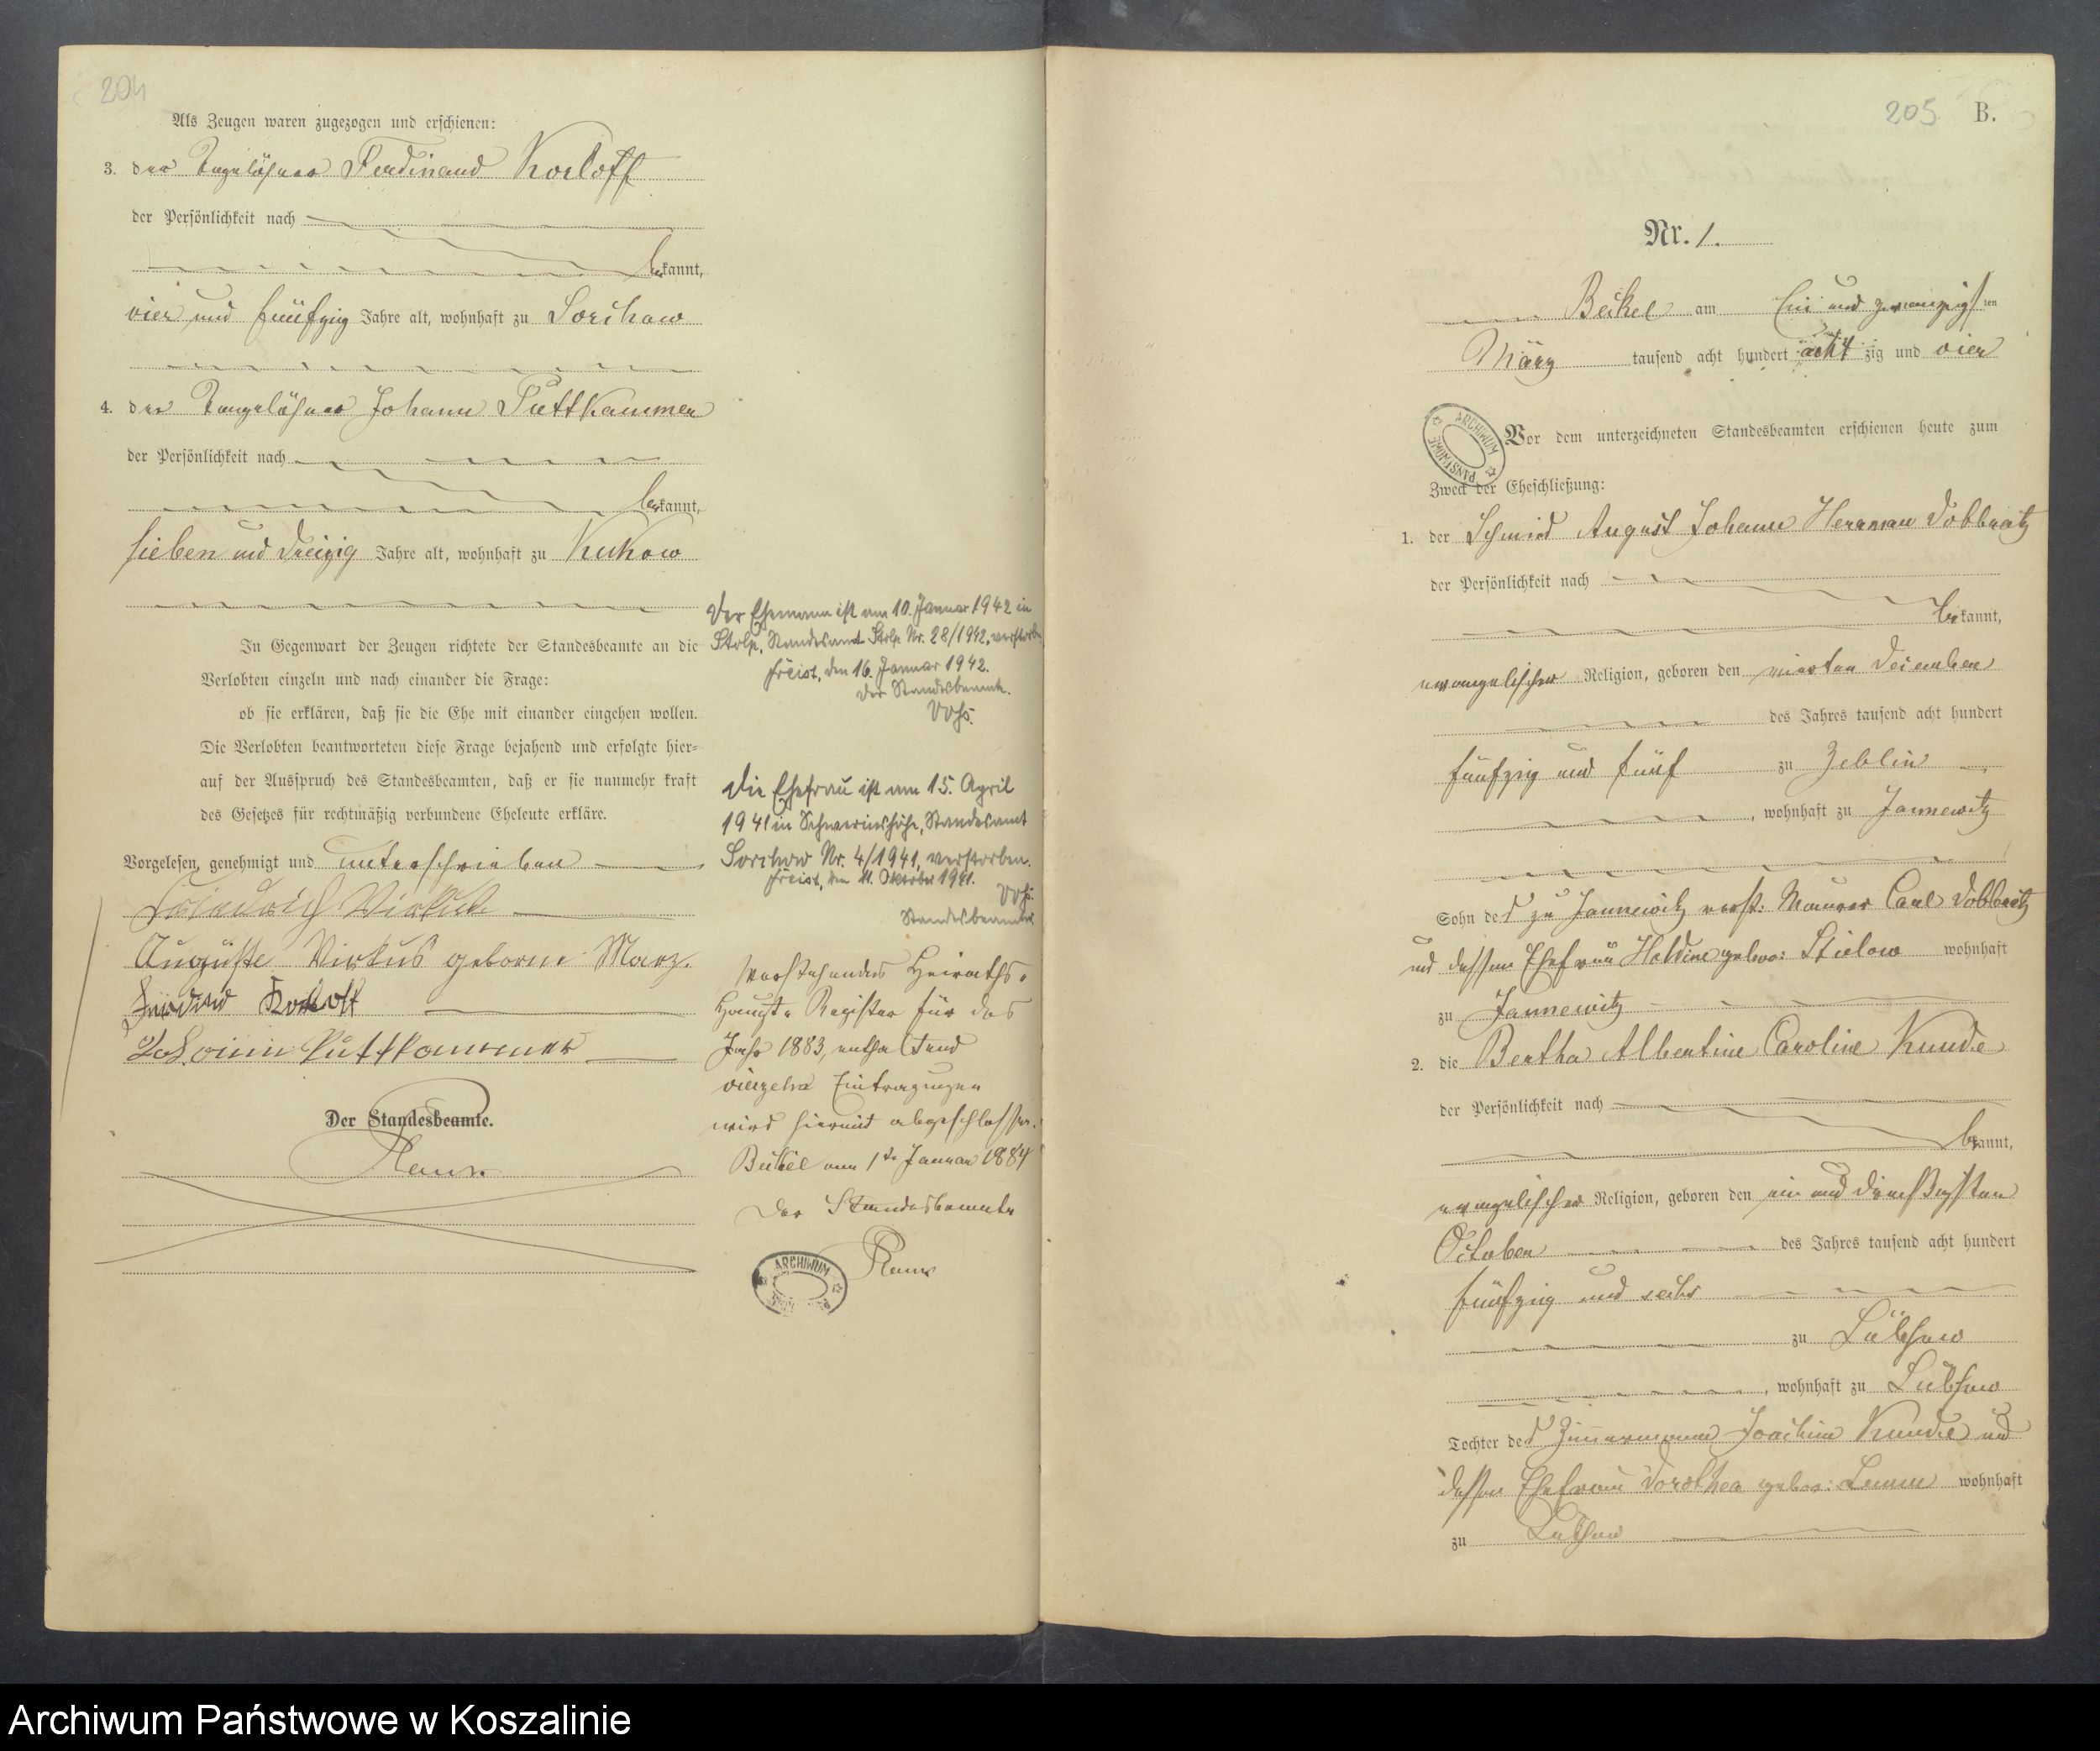 204
Als Zeugen waren zugezogen und erschienen:
3. der Tagelöhner Ferdinand Korloff
der Persönlichkeit nach
bekannt,
vier und fünfzig Jahre alt, wohnhaft zu Sorchow
4. der Tagelöhner Johann Puttkammer
der Persönlichkeit nach
bekannt,
sieben und dreizig Jahre alt, wohnhaft zu Kukow
In Gegenwart der Zeugen richtete der Standesbeamte an die
Verlobten einzeln und nach einander die Frage:
ob sie erklären, daß sie die Ehe mit einander eingehen wollen.
Die Verlobten beantworteten diese Frage bejahend und erfolgte hier-
auf der Ausspruch des Standesbeamten, daß er sie nunmehr kraft
des Gesetzes für rechtmäßig verbundene Eheleute erkläre.
Vorgelesen, genehmigt und unterschrieben
Friedrich Virkus
Auguste Virkus geborne Marz.
Korloff
Johann Puttkammer
Der Standesbeamte.
Der Ehemann ist am 10. Januar 1942 in
Stolp, Standesamt Stolp Nr. 28/1942, verstorben
Freist, den 16. Januar 1942.
Der Standesbeamte.
Die Ehefrau ist am 15. April
1941 in Schwerinshöhe, Standesamt
Sorchow Nr. 4/1941, verstorben.
Freist, den 11. Oktober 1941.
Standesbeamter
Vorstehendes Heiraths-
Haupt-Register für das
Jahr 1883, enthaltend
vierzehn Eintragungen
wird hiermit abgeschlossen.
Beckel am 1ten Januar 1884
Der Standesbeamte
ARCHIWUM
205 B.
Nr. 1.
Beckel am Ein und zwanzigsten
März tausend acht hundert achtzig und vier
ARCHIWUM PAŃSTWOWE
Vor dem unterzeichneten Standesbeamten erschienen heute zum
Zweck der Eheschließung:
1. der Schmied August Johann Herrman Dobbratz
der Persönlichkeit nach
bekannt,
evangelischer Religion, geboren den vierten December
des Jahres tausend acht hundert
fünfzig und fünf zu Zeblin
, wohnhaft zu Jannewitz
Sohn des zu Jannewitz verst: Maurer Carl Dobbratz
und dessen Ehefrau gebor: Stielow wohnhaft
zu Jannewitz
2. die Bertha Albertine Caroline Kunde
der Persönlichkeit nach
bekannt,
evangelischer Religion, geboren den ein und dreißigsten
October des Jahres tausend acht hundert
fünfzig und sechs
zu Lübzow
, wohnhaft zu Lübzow
Tochter des Zimmermann Joachim Kunde und
dessen Ehefrau Dorothea gebor: wohnhaft
zu Lübzow
Archiwum Państwowe w Koszalinie